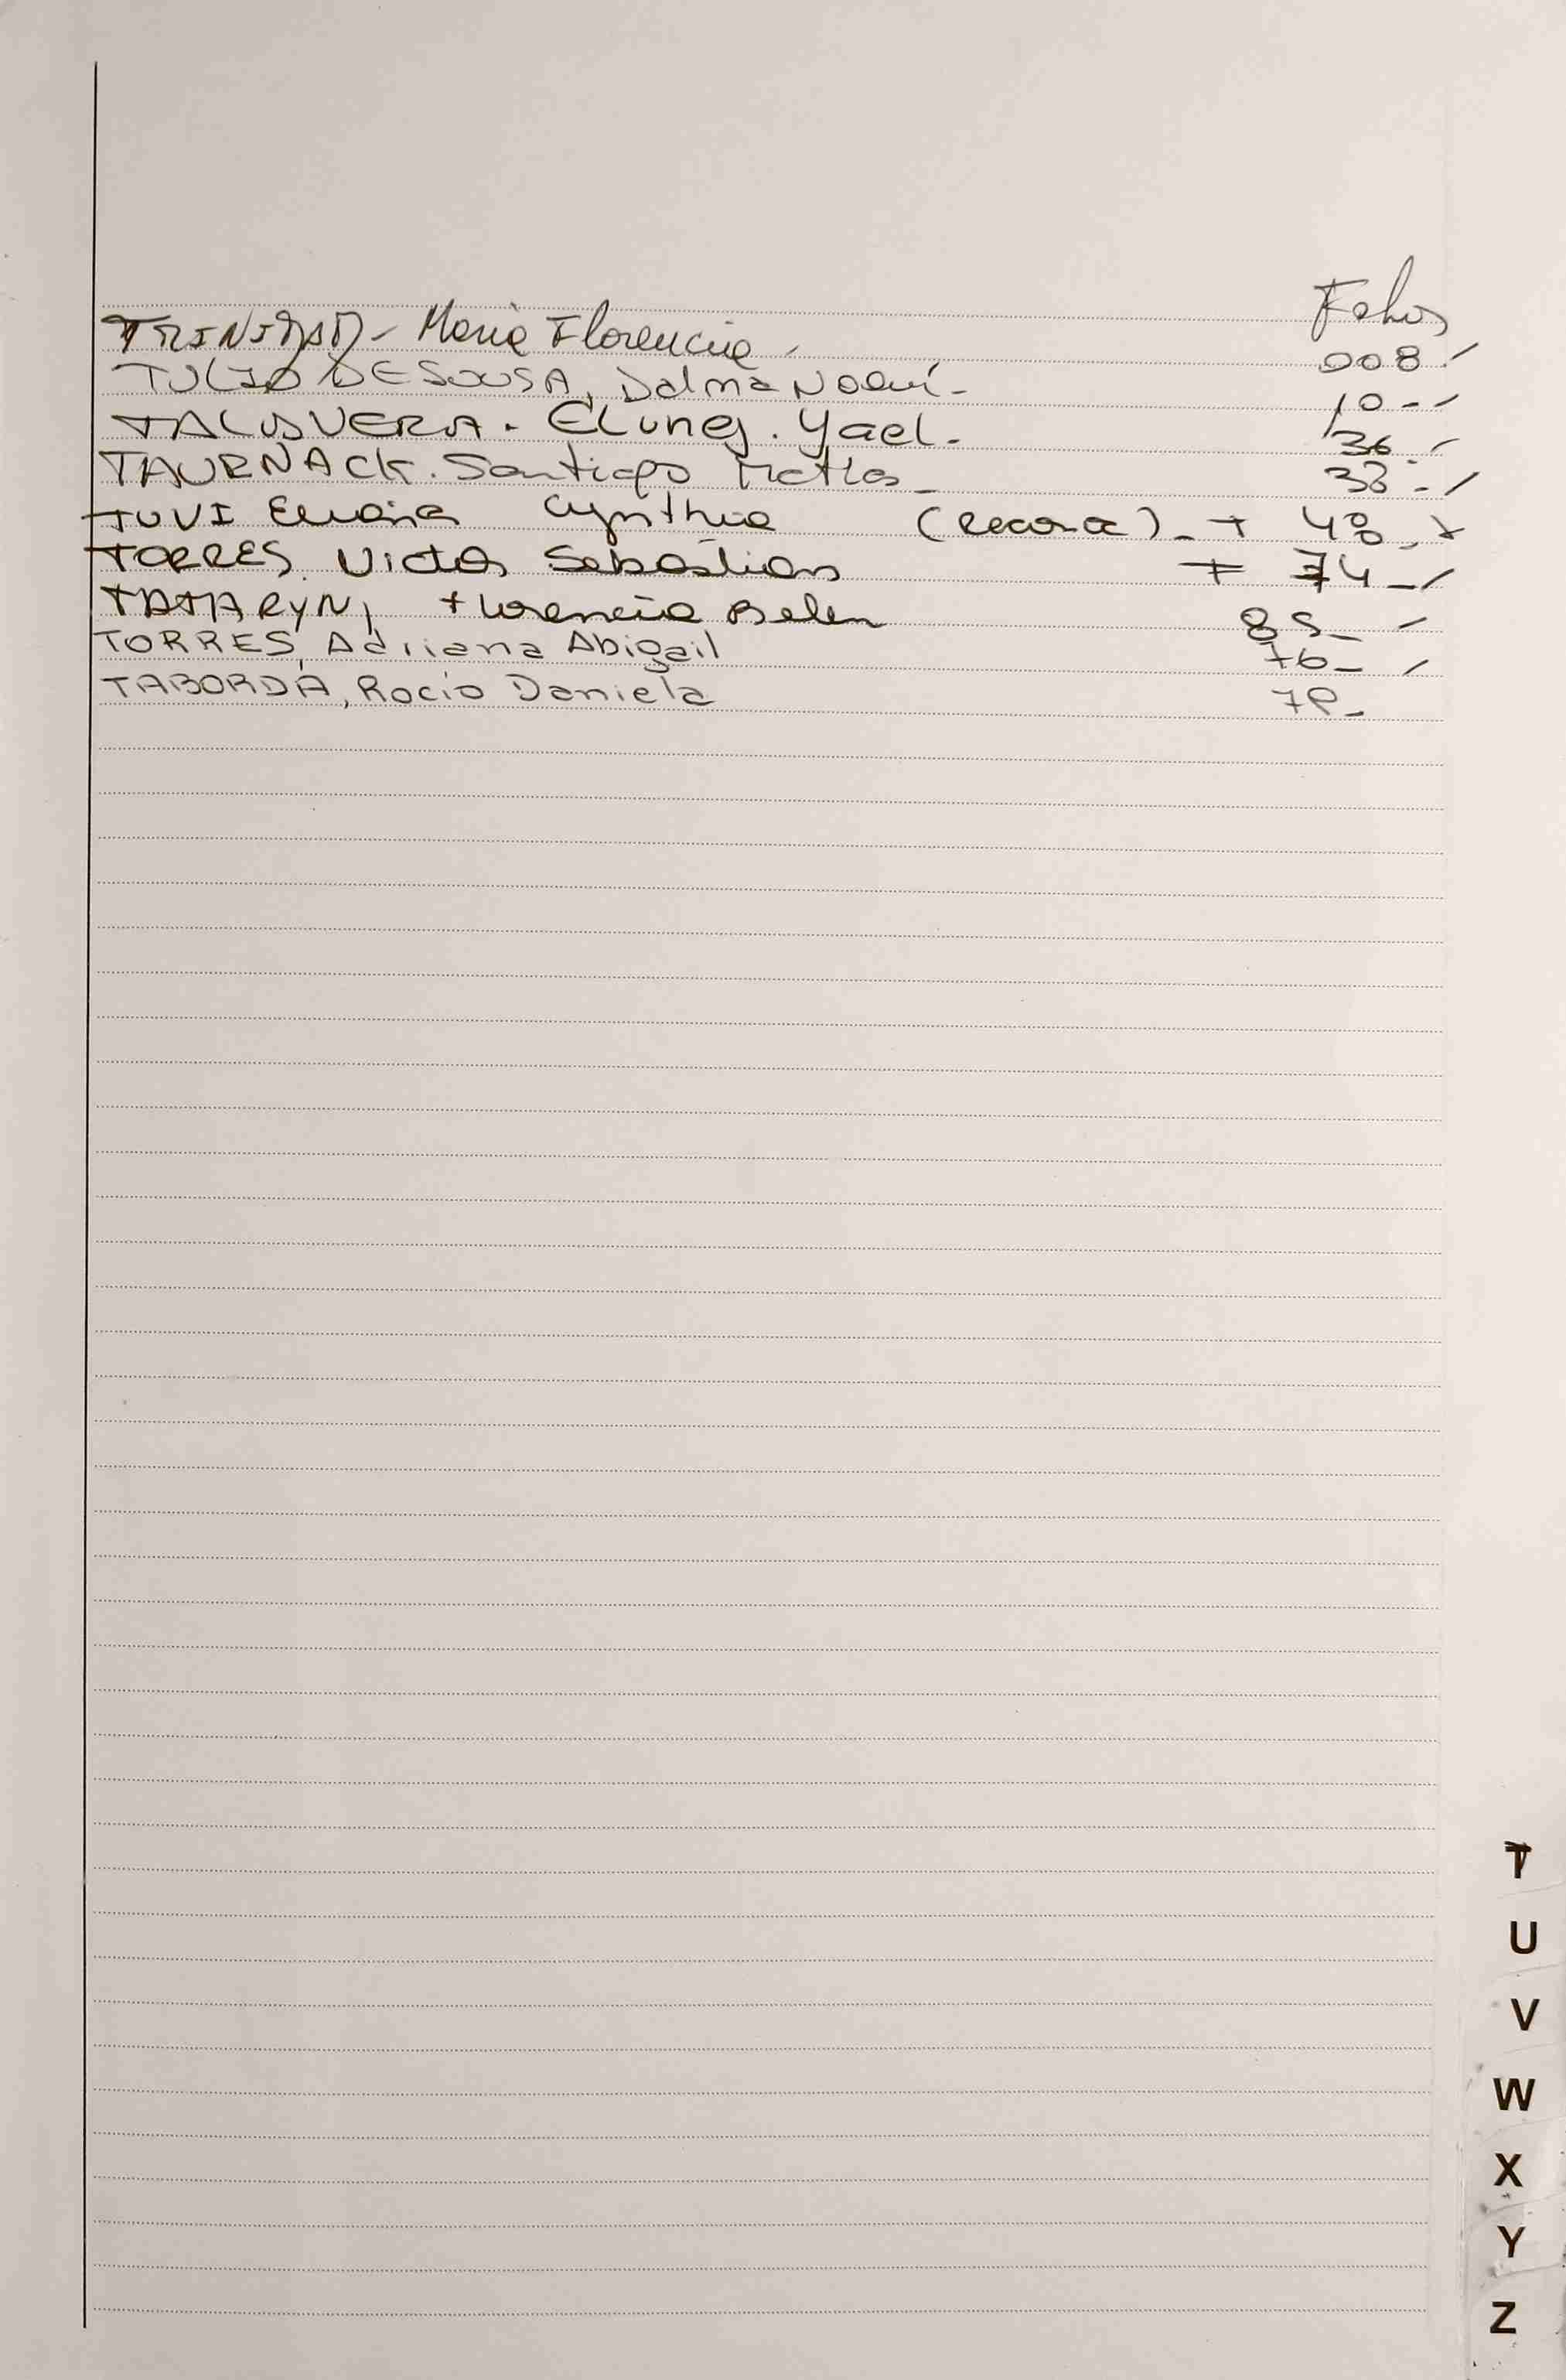 Folios
TRINIDAD - Maria Florencia 008.-/
TULIO DE SOUSA, Dalma Noemí- 10--
TALAVERA. Eluney. Yael. 36.-
TAURÑACK. Santiago Matías- 38.-/
TUVI Eliana Cynthia - + 48.-
TORRES. Victor Sebastian + 74-/
TATARYN, Florencia Belen 85-
TORRES, Adriana Abigail 76-/
TABORDA, Rocío Daniela
T
U
V
W
X
Y
Z